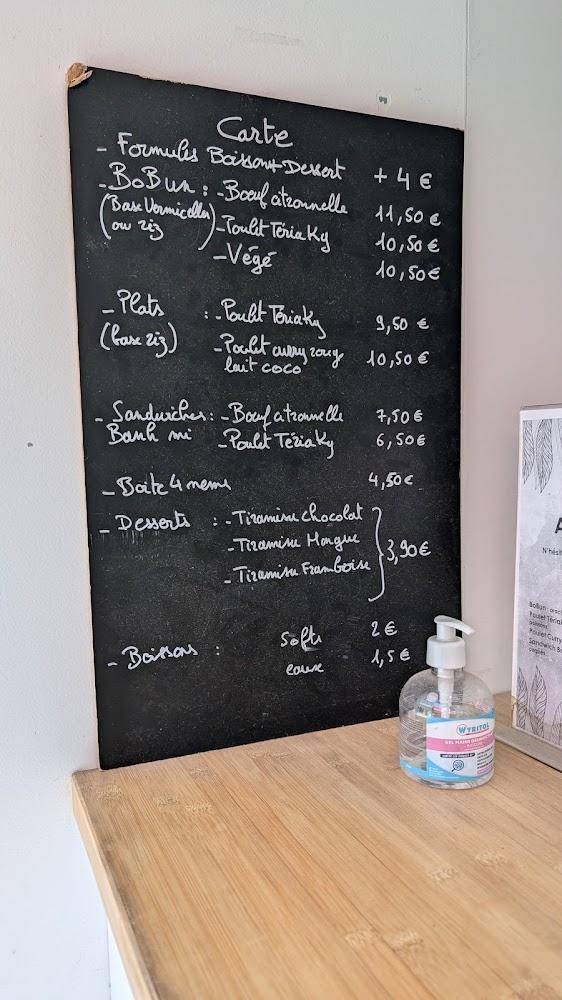 Carte
- Formules Boisson + Dessert + 4 €
- BoBun : - Boeuf citronnelle 11,50 €
(Base Vermicelles - Poulet Tériaky 10,50 €
ou riz) - Végé 10,50 €
- Plats : - Poulet Tériaky 9,50 €
(base riz) - Poulet curry rouge 10,50 €
lait coco
- Sandwiches : - Boeuf citronnelle 7,50 €
Banh mi - Poulet Tériaky 6,50 €
- Boite 4 nems 4,50 €
- Desserts : - Tiramisu Chocolat
- Tiramisu Mangue 3,90 €
- Tiramisu Framboise
- Boissons : Softs 2 €
eaux 1,5 €
WYRITOL
GEL MAINS
A
N'hési
BoBun : arac
Poulet Tériak
Poulet Curry
Sandwich Ba